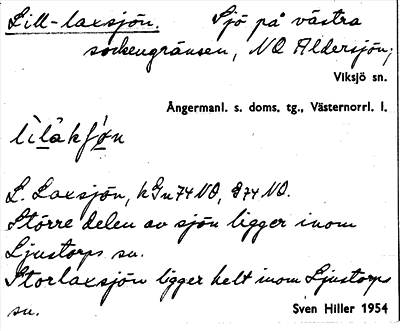 Lill-laxsjön. Sjö på västra
sockengränsen, NO Aldersjön;
Viksjö sn.
Ångermanl. s. doms. tg., Västernorrl. l.
L. Laxsjön, kGn74NO, 74 NO.
Större delen av sjön ligger inom
Ljustorps sn.
Storlaxsjön ligger helt inom Ljustorps
sn.
Sven Hiller 1954